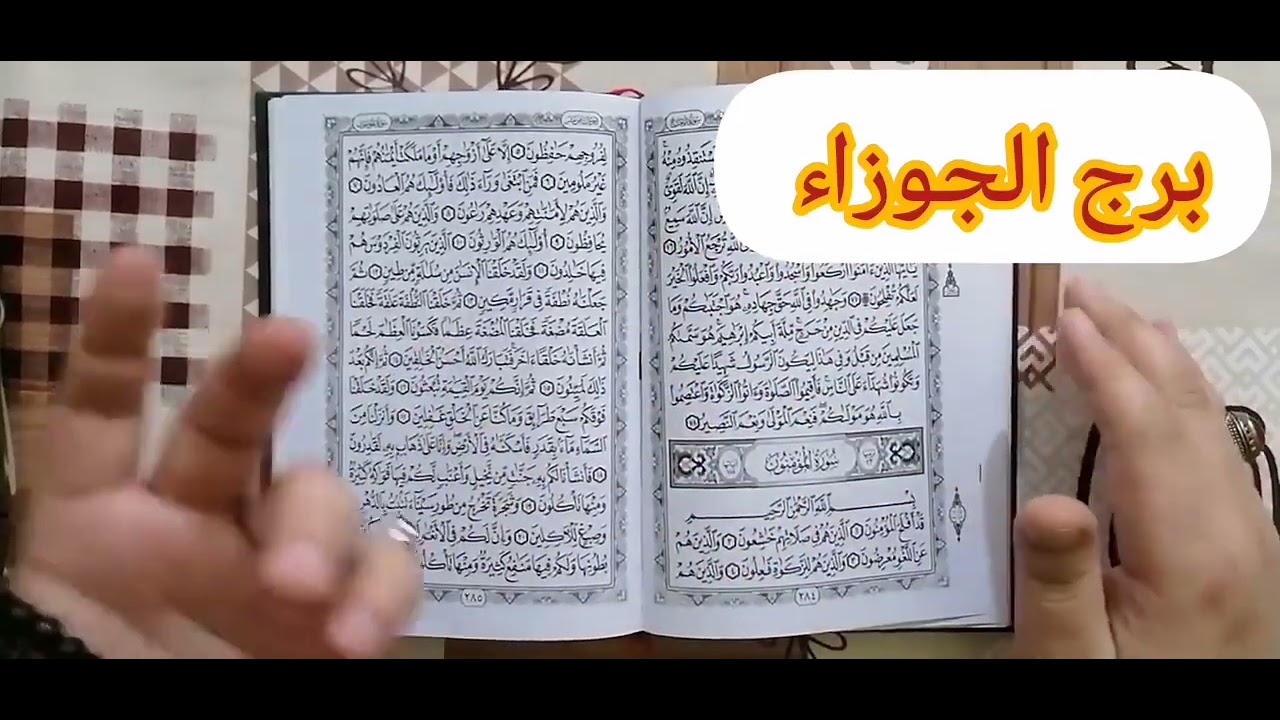 برج الجوزاء
مِنْهُ
إِنَّ ٱللَّهَ لَقَوِىٌّ
إِنَّ ٱللَّهَ سَمِيعٌ
ٱللَّهِ تُرْجَعُ ٱلْأُمُورُ ٧٦
يَٰٓأَيُّهَا ٱلَّذِينَ ءَامَنُوا۟ ٱرْكَعُوا۟ وَٱسْجُدُوا۟ وَٱعْبُدُوا۟ رَبَّكُمْ وَٱفْعَلُوا۟ ٱلْخَيْرَ
لَعَلَّكُمْ تُفْلِحُونَ ۩ ٧٧ وَجَٰهِدُوا۟ فِى ٱللَّهِ حَقَّ جِهَادِهِۦ هُوَ ٱجْتَبَىٰكُمْ وَمَا
جَعَلَ عَلَيْكُمْ فِى ٱلدِّينِ مِنْ حَرَجٍ مِّلَّةَ أَبِيكُمْ إِبْرَٰهِيمَ هُوَ سَمَّىٰكُمُ
ٱلْمُسْلِمِينَ مِن قَبْلُ وَفِى هَٰذَا لِيَكُونَ ٱلرَّسُولُ شَهِيدًا عَلَيْكُمْ
وَتَكُونُوا۟ شُهَدَآءَ عَلَى ٱلنَّاسِ فَأَقِيمُوا۟ ٱلصَّلَوٰةَ وَءَاتُوا۟ ٱلزَّكَوٰةَ وَٱعْتَصِمُوا۟
بِٱللَّهِ هُوَ مَوْلَىٰكُمْ فَنِعْمَ ٱلْمَوْلَىٰ وَنِعْمَ ٱلنَّصِيرُ ٧٨
سُورَةُ الْمُؤْمِنُونَ
بِسْمِ ٱللَّهِ ٱلرَّحْمَٰنِ ٱلرَّحِيمِ
قَدْ أَفْلَحَ ٱلْمُؤْمِنُونَ ١ ٱلَّذِينَ هُمْ فِى صَلَاتِهِمْ خَٰشِعُونَ ٢ وَٱلَّذِينَ هُمْ
عَنِ ٱللَّغْوِ مُعْرِضُونَ ٣ وَٱلَّذِينَ هُمْ لِلزَّكَوٰةِ فَٰعِلُونَ ٤ وَٱلَّذِينَ هُمْ
٢٨٤
لِفُرُوجِهِمْ حَٰفِظُونَ ٥ إِلَّا عَلَىٰٓ أَزْوَٰجِهِمْ أَوْ مَا مَلَكَتْ أَيْمَٰنُهُمْ فَإِنَّهُمْ
غَيْرُ مَلُومِينَ ٦ فَمَنِ ٱبْتَغَىٰ وَرَآءَ ذَٰلِكَ فَأُو۟لَٰٓئِكَ هُمُ ٱلْعَادُونَ ٧
وَٱلَّذِينَ هُمْ لِأَمَٰنَٰتِهِمْ وَعَهْدِهِمْ رَٰعُونَ ٨ وَٱلَّذِينَ هُمْ عَلَىٰ صَلَوَٰتِهِمْ
يُحَافِظُونَ ٩ أُو۟لَٰٓئِكَ هُمُ ٱلْوَٰرِثُونَ ١٠ ٱلَّذِينَ يَرِثُونَ ٱلْفِرْدَوْسَ هُمْ
فِيهَا خَٰلِدُونَ ١١ وَلَقَدْ خَلَقْنَا ٱلْإِنسَٰنَ مِن سُلَٰلَةٍ مِّن طِينٍ ١٢ ثُمَّ
جَعَلْنَٰهُ نُطْفَةً فِى قَرَارٍ مَّكِينٍ ١٣ ثُمَّ خَلَقْنَا ٱلنُّطْفَةَ عَلَقَةً فَخَلَقْنَا
ٱلْعَلَقَةَ مُضْغَةً فَخَلَقْنَا ٱلْمُضْغَةَ عِظَٰمًا فَكَسَوْنَا ٱلْعِظَٰمَ لَحْمًا
ثُمَّ أَنشَأْنَٰهُ خَلْقًا ءَاخَرَ فَتَبَارَكَ ٱللَّهُ أَحْسَنُ ٱلْخَٰلِقِينَ ١٤ ثُمَّ إِنَّكُم بَعْدَ
ذَٰلِكَ لَمَيِّتُونَ ١٥ ثُمَّ إِنَّكُمْ يَوْمَ ٱلْقِيَٰمَةِ تُبْعَثُونَ ١٦ وَلَقَدْ خَلَقْنَا
فَوْقَكُمْ سَبْعَ طَرَآئِقَ وَمَا كُنَّا عَنِ ٱلْخَلْقِ غَٰفِلِينَ ١٧ وَأَنزَلْنَا مِنَ
ٱلسَّمَآءِ مَآءًۢ بِقَدَرٍ فَأَسْكَنَّٰهُ فِى ٱلْأَرْضِ وَإِنَّا عَلَىٰ ذَهَابٍۭ بِهِۦ لَقَٰدِرُونَ
١٨ فَأَنشَأْنَا لَكُم بِهِۦ جَنَّٰتٍ مِّن نَّخِيلٍ وَأَعْنَٰبٍ لَّكُمْ فِيهَا فَوَٰكِهُ كَثِيرَةٌ
وَمِنْهَا تَأْكُلُونَ ١٩ وَشَجَرَةً تَخْرُجُ مِن طُورِ سَيْنَآءَ تَنۢبُتُ بِٱلدُّهْنِ
وَصِبْغٍ لِّلْـَٔاكِلِينَ ٢٠ وَإِنَّ لَكُمْ فِى ٱلْأَنْعَٰمِ
بُطُونِهَا وَلَكُمْ فِيهَا مَنَٰفِعُ كَثِيرَةٌ وَمِنْهَا تَأْكُلُونَ
٢٨٥